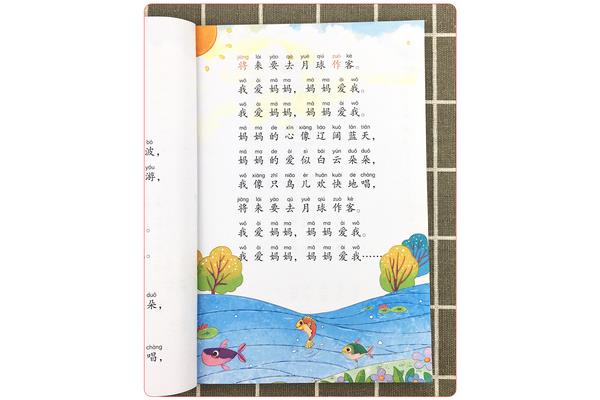 bō
波，
yóu
游，
。
。
duǒ
朵，
chàng
唱，
jiāng lái yào qù yuè qiú zuò kè
将来要去月球作客。
wǒ ài mā ma mā ma ài wǒ
我爱妈妈，妈妈爱我。
wǒ ài mā ma mā ma ài wǒ
我爱妈妈，妈妈爱我。
mā ma de xīn xiàng liáo kuò lán tiān
妈妈的心像辽阔蓝天，
mā ma de ài sì bái yún duǒ duǒ
妈妈的爱似白云朵朵，
wǒ xiàng zhī niǎo ér huān kuài de chàng
我像只鸟儿欢快地唱，
jiāng lái yào qù yuè qiú zuò kè
将来要去月球作客。
wǒ ài mā ma mā ma ài wǒ
我爱妈妈，妈妈爱我。
wǒ ài mā ma mā ma ài wǒ
我爱妈妈，妈妈爱我……